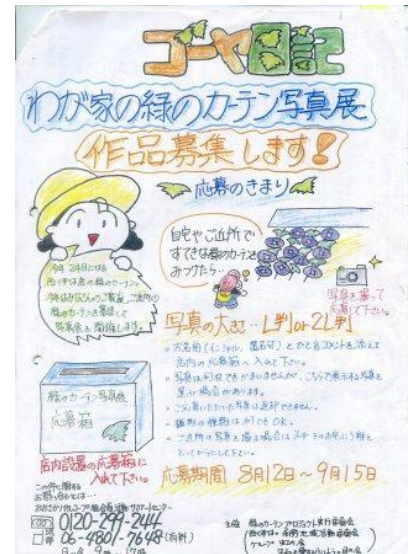 ゴーヤ日記
わが家の緑のカーテン写真展
作品募集します!
応募のきまり
自宅やご近所で
すてきな緑のカーテンを
みつけたら…
今年2年目になる
緑のカーテン。
緑のカーテンを募集して
写真展を開催します。
写真を撮って
応募して下さい。
写真の大きさ‥L判or2L判
・お名前(イニシャル、匿名可)とひと言コメントを添えて
店内の応募箱へ入れて下さい。
・写真は何枚でもかまいませんが、こちらで展示する写真を
選ぶ場合があります。
・ご応募いただいた写真は返却できません。
・植物の種類は何でもOK。
・ご近所の写真を撮る場合は
とってからにして下さい。
緑のカーテン写真展
応募箱
店内設置の応募箱に
入れて下さい。
応募期間 8月12日~9月15日
この件に関する
お問い合わせは…
0120-299-244
06-4801-7648(有料)
主催 緑のカーテンプロジェクト実行委員会